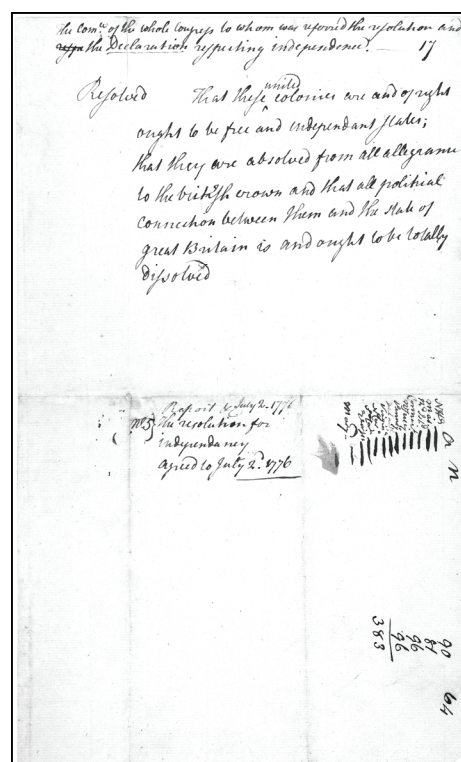 The Com.ee of the whole Congress to whom was referred the resolution and
the Declaration respecting independence. — 17
Resolved That these united colonies are and of right
ought to be free and independant states;
that they are absolved from all allegiance
to the british crown and that all political
connection between them and the state of
great Britain is and ought to be totally
dissolved
Report July 2. 1776
No 5) the resolution for
independancy
agreed to July 2.d 1776
90
81
96
96
383
64